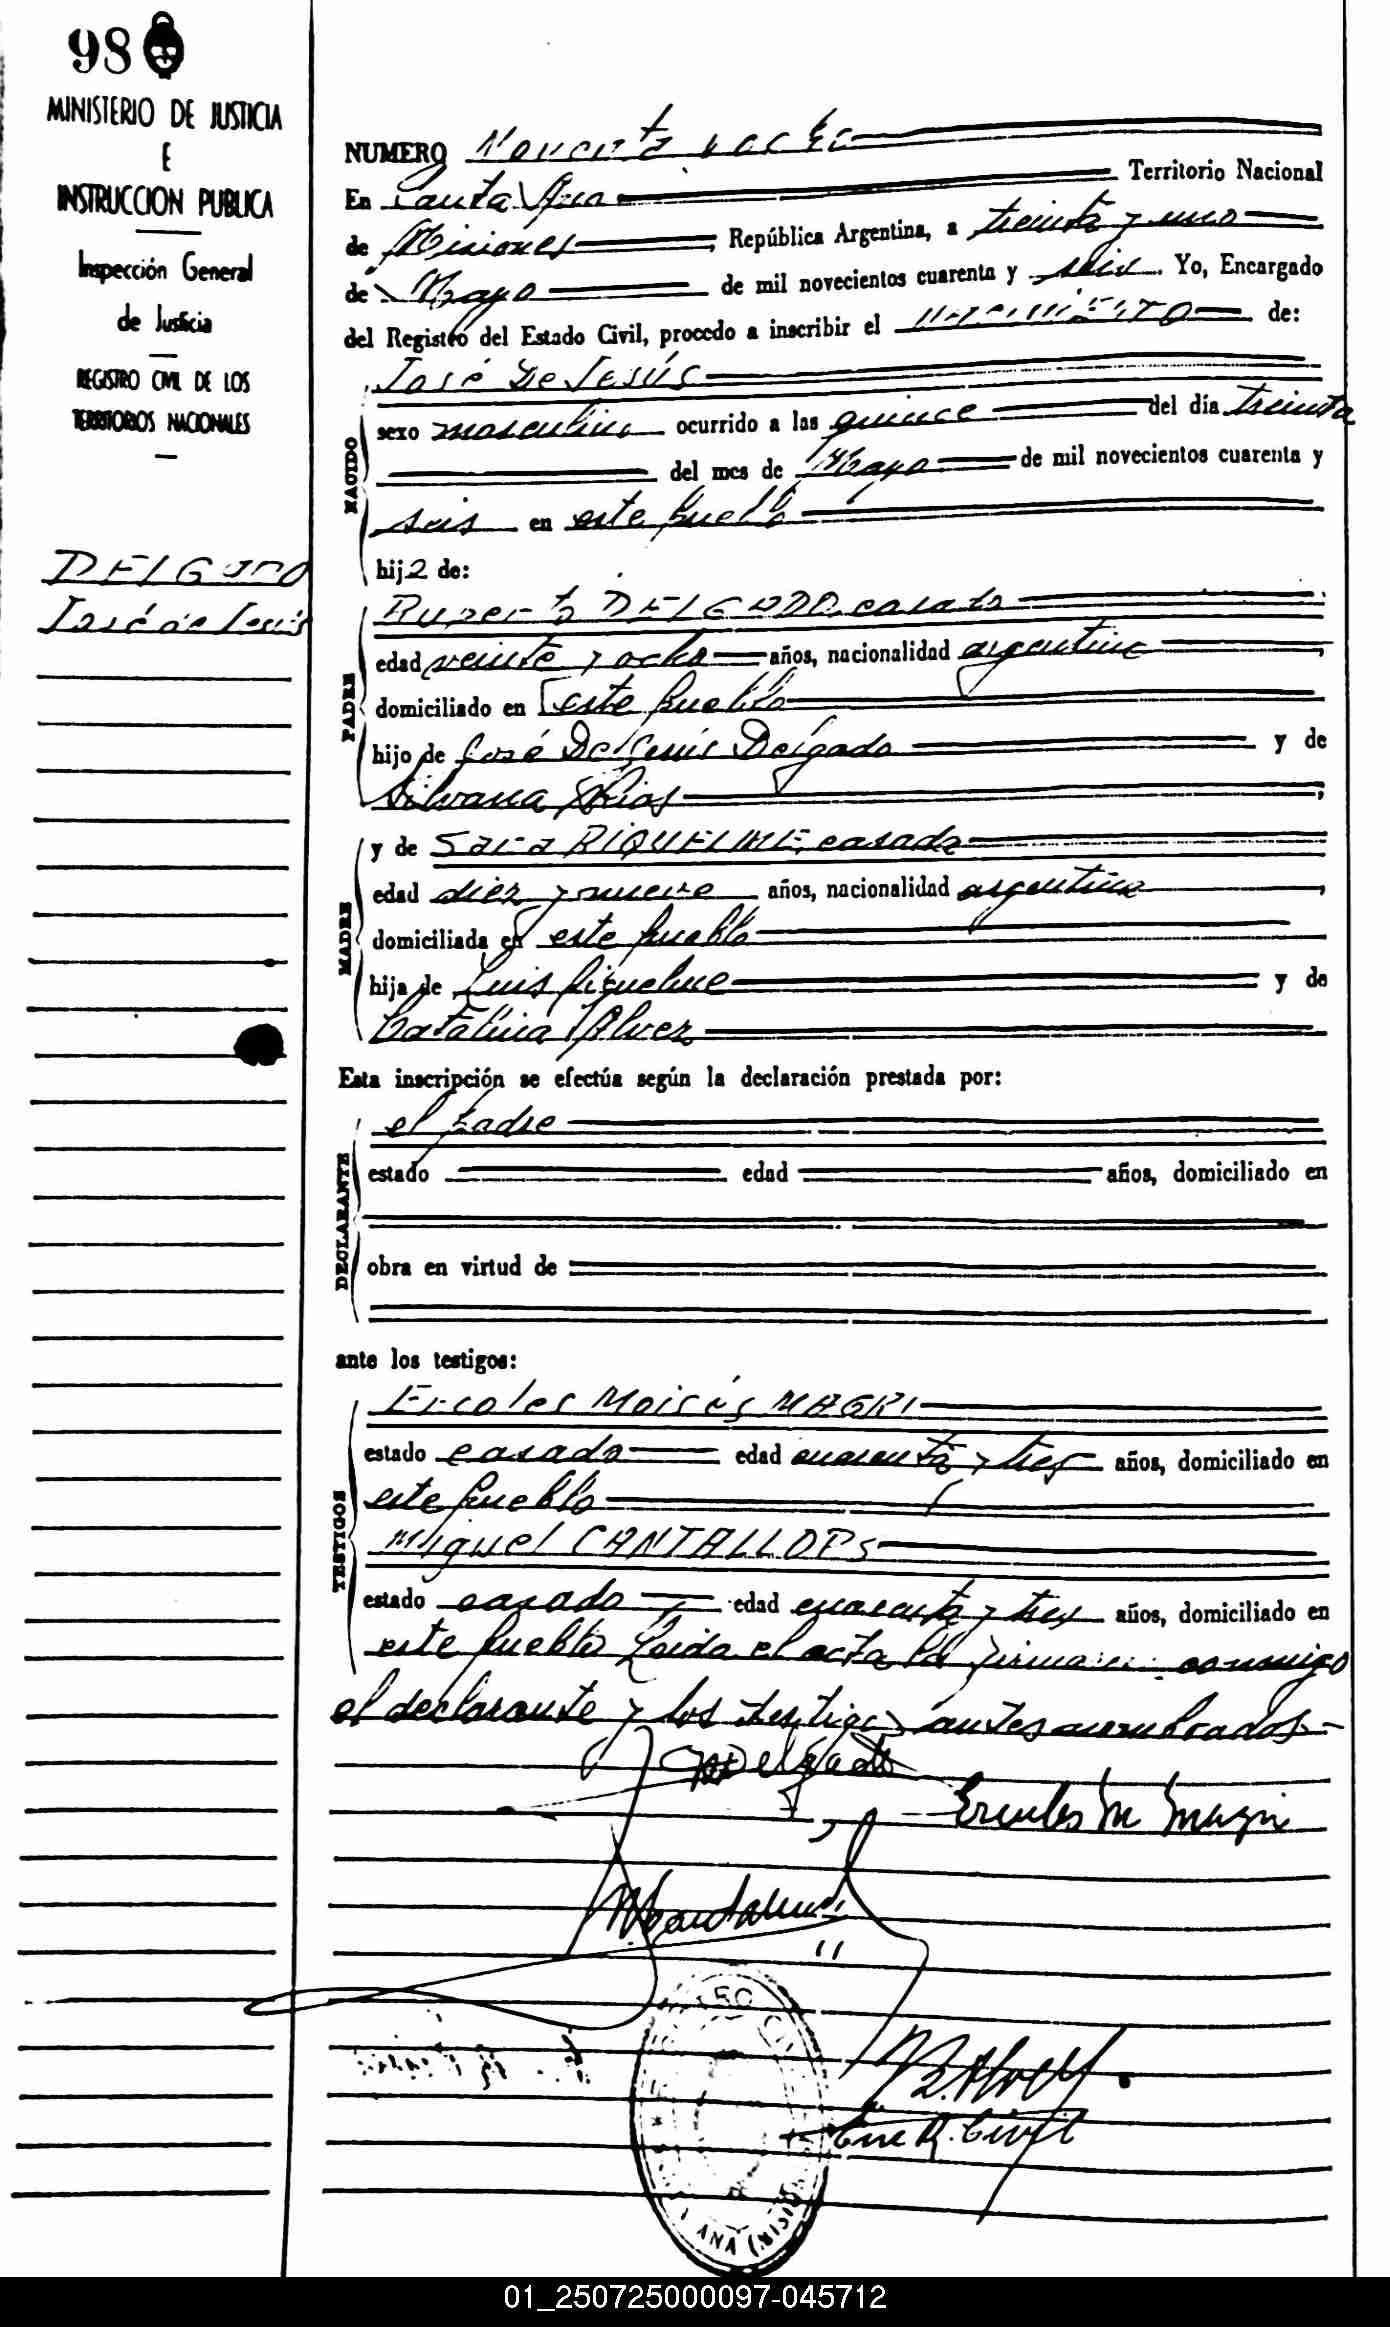 98
MINISTERIO DE JUSTICIA
E
INSTRUCCION PUBLICA
Inspección General
de Justicia
REGISTRO CIVIL DE LOS
TERRITORIOS NACIONALES
DELGADO
José de Jesús
NUMERO Noventa y ocho
En Santa Ana Territorio Nacional
de Misiones, República Argentina, a treinta y uno
de Mayo de mil novecientos cuarenta y seis. Yo, Encargado
del Registro del Estado Civil, procedo a inscribir el nacimiento de:
NACIDO
José De Jesús
sexo masculino ocurrido a las quince del día treinta
del mes de Mayo de mil novecientos cuarenta y
seis en este pueblo
hijo de:
PADRE
Ruperto DELGADO, casado
edad veinte y ocho años, nacionalidad argentina,
domiciliado en este pueblo
hijo de José De Jesús Delgado y de
Silvana Ríos,
MADRE
y de Sara RIQUELME, casada
edad diez y nueve años, nacionalidad argentina,
domiciliada en este pueblo
hija de Luis Riquelme y de
Catalina Alvez
Esta inscripción se efectúa según la declaración prestada por:
DECLARANTE
el padre
estado edad años, domiciliado en
obra en virtud de
ante los testigos:
TESTIGOS
Ercoles Moisés MAGRI
estado casado edad cuarenta y tres años, domiciliado en
este pueblo
Miguel CANTALLOPS
estado casado edad cuarenta y tres años, domiciliado en
este pueblo Leida el acta la firman conmigo
el declarante y los testigos antes nombrados.-
Delgado
Ercoles M Magri
Enc R. Civil
01_250725000097-045712